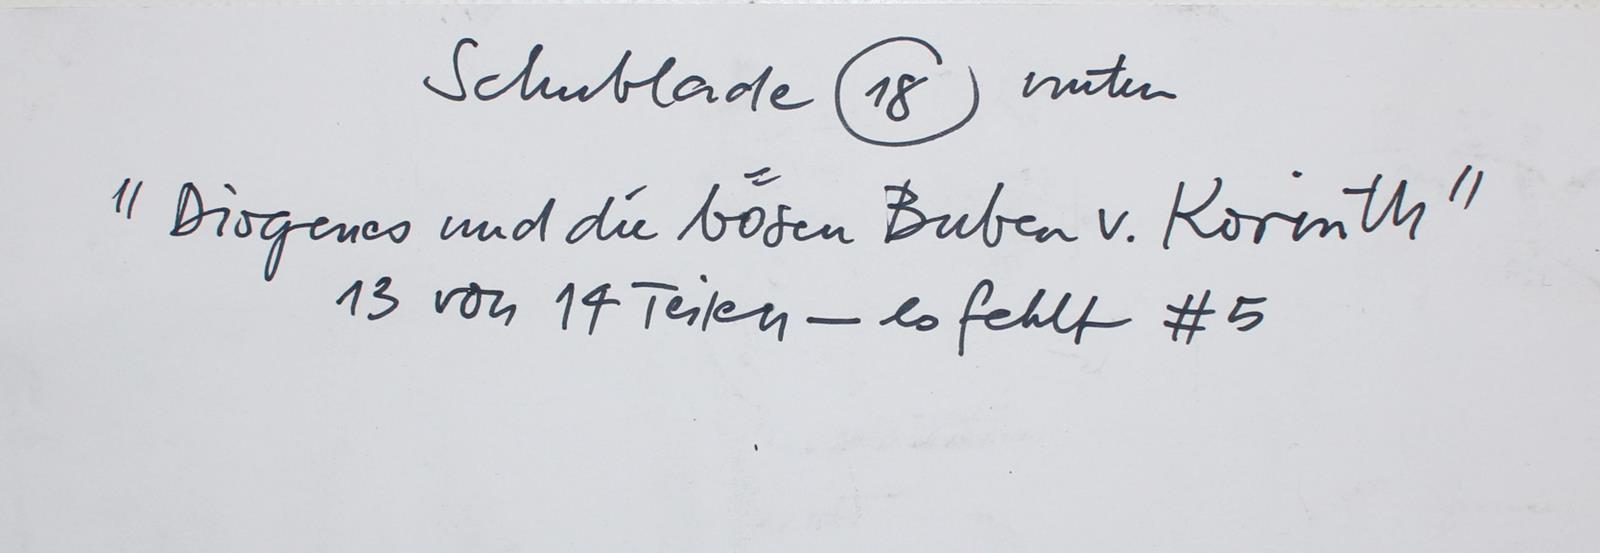 Schublade 18 unten
"Diogenes und die bösen Buben v. Korinth"
13 von 14 Teilen – es fehlt #5